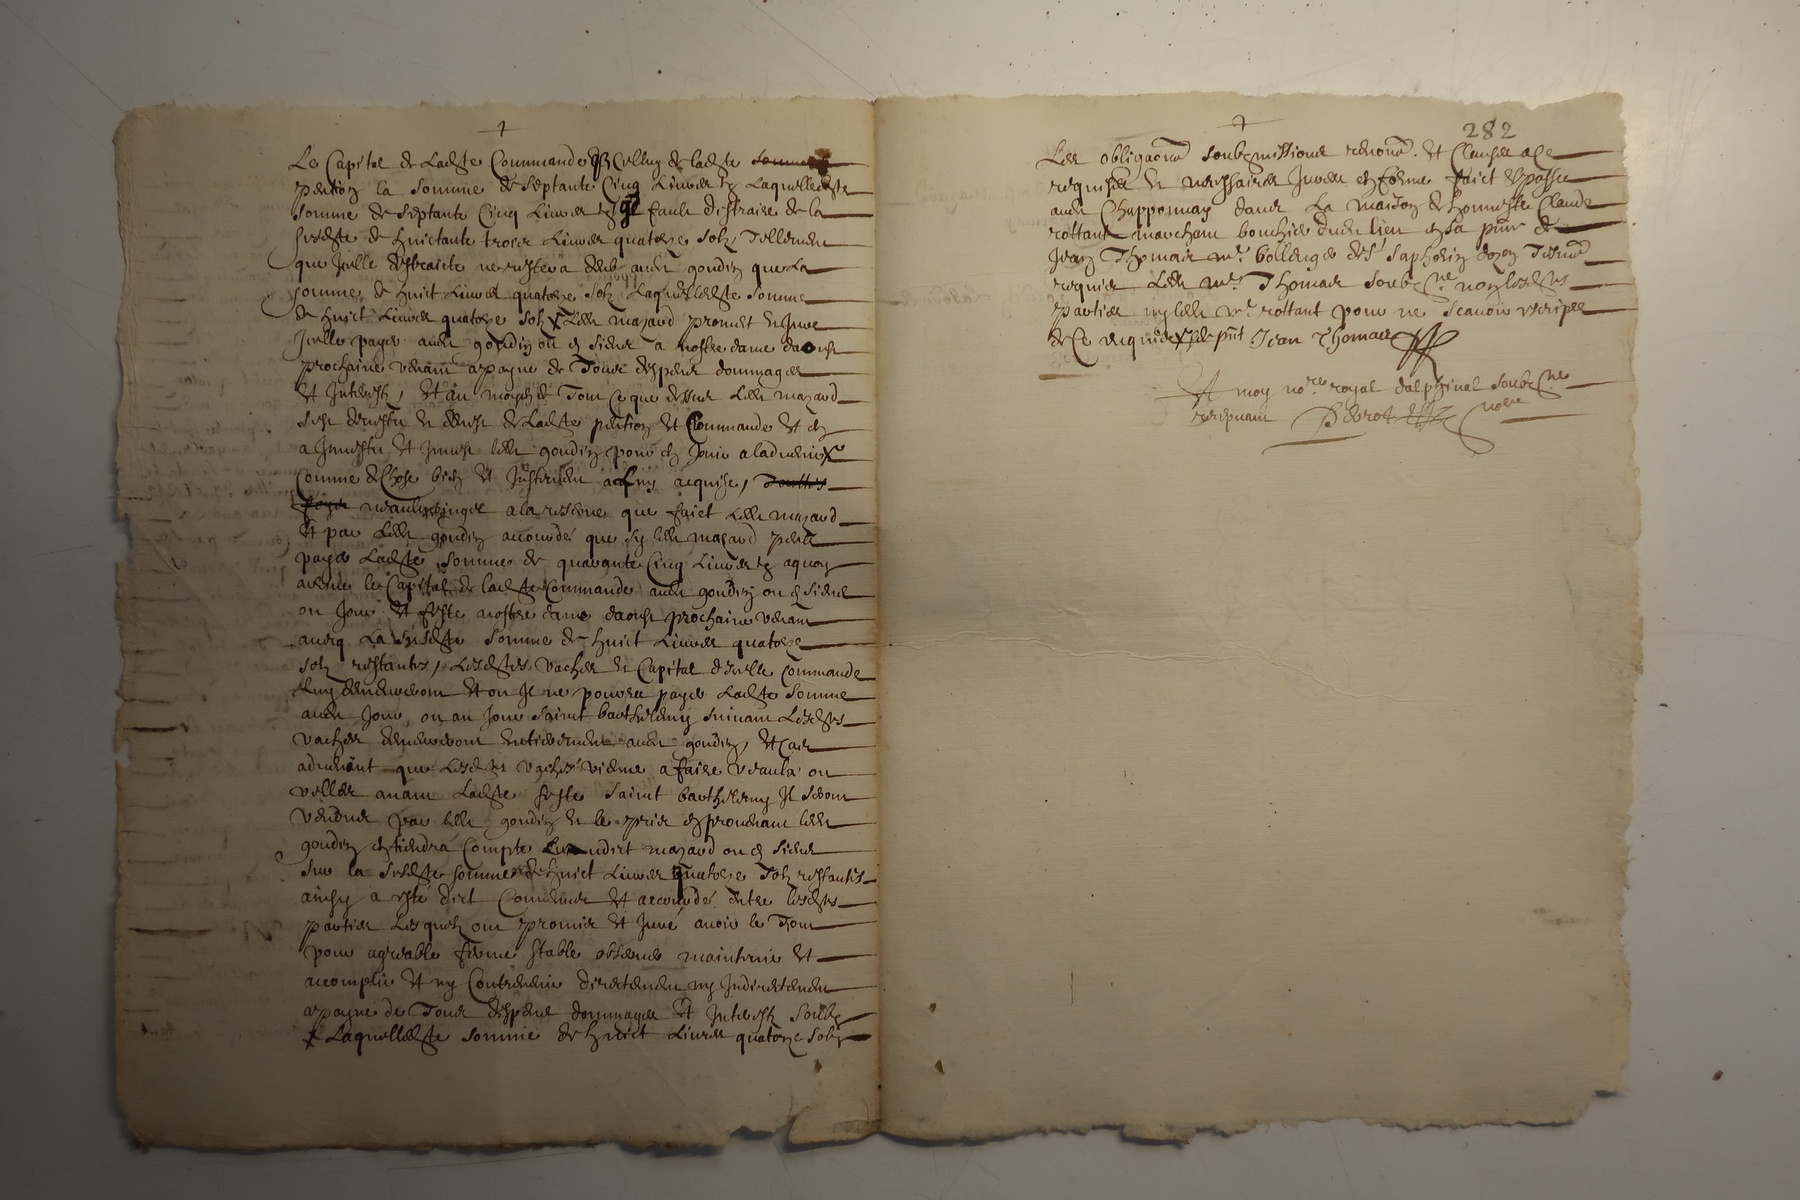 Le Capital de Ladte Commande Et Celluy de ladte somme
pention la somme de septante Cinq Livres tz Laquelledte
somme de septante Cinq Livres tz Il fault distraire de la
susdte de huictante trois Livres quatorze solz, Tellement
que Jcelle distraicte ne restera deub audt goudin que La
somme de huict Livres quatorze solz Laquelledte somme
de huict Livres quatorze solz ledt mazard promect et Jure
Jcelle payer audt goudin ou es siens a nostre dame daoust
prochaine venant a payne de Tous despens dommages
et Interestz, Et au moyen de Tout Ce que dessus Ledt mazard
sest desvestu et desvest de Ladte pention et Commande et en
a Jnvestu et Jnvest ledt goudin pour en Jouir a ladvenir
Comme de Chose bien et Justement a luy acquise,
neaultmoings a la reserve que faict Ledt mazard
Et par Ledt goudin accourdé que sy ledt mazard peult
payer Ladte somme de quarante Cinq Livres tz a quoy
arrive le Capital de ladte Commande audt goudin ou es siens
ou Jour et feste nostre dame daoust prochaine venant
avecq La susdte somme de huict Livres quatorze
solz restants, Lesdtes vaches et Capital dicelle Commande
luy demeureront Et ou Il ne pourra payer Ladte somme
audt Jour, ou au Jour saint barthelemy suivant Lesdtes
vaches demeureront entierement audt goudin, Et Cas
advenant que Lesdtes vaches vienne a faire veaulx ou
velles avant Ladte feste saint barthelemy Il seront
vendus par ledt goudin et le prix en provenant ledt
goudin en tiendra Compte audict mazard ou es siens
sur la susdte somme de huict Livres quatorze solz restantes
ainsy a esté dict Convenu et accourdé entre lesdtes
parties Lesquelz ont promis et Juré avoir le Tout
pour agreable ferme stable observer maintenir et
accomplir et ny Contrevenir directement ny Indirectement
a payne de Tous despens dommages et Interestz soubz
Laquelledte somme de huict Livres quatorze solz
282
Les obligaons soubzmissions renons. et Clauses a ce
requises et necessaires Jurees en forme faict et passe
audt Chapponnay dans La maison de honneste Claude
rottant marchant bouchier dudt lieu en sa pnce et de
Jean Thomas mr. bollenger de St saphorin dozon Tesmoings
requis Ledt mr Thomas soubzne non lesdtes
parties ny ledt mr rottant pour ne scavoir escripre
de Ce requis Jean Thomas
Et moy nore royal dalphinal soubzne
recepvant nore